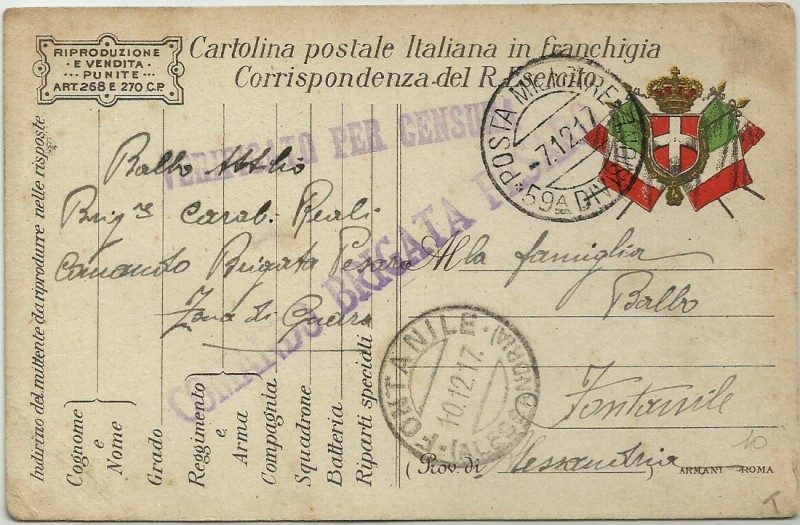 RIPRODUZIONE
E VENDITA
PUNITE
ART. 268 E 270 C.P.
Cartolina postale Italiana in franchigia
Corrispondenza del R. Esercito
POSTA MILITARE
-7.12.17
59A DIVISIONE
VERIFICATO PER CENSURA
COMANDO BRIGATA PESARO
Indirizzo del mittente da riprodurre nelle risposte
Balbo Attilio
Brig.re Carab. Reali
Comando Brigata Pesaro
Zona di Guerra
Cognome
e
Nome
Grado
Reggimento
e
Arma
Compagnia
Squadrone
Batteria
Riparti speciali
Alla famiglia
Balbo
Fontanile
(Prov. di Alessandria
FONTANILE
10.12.17
(ALESSANDRIA)
10
ARMANI - ROMA